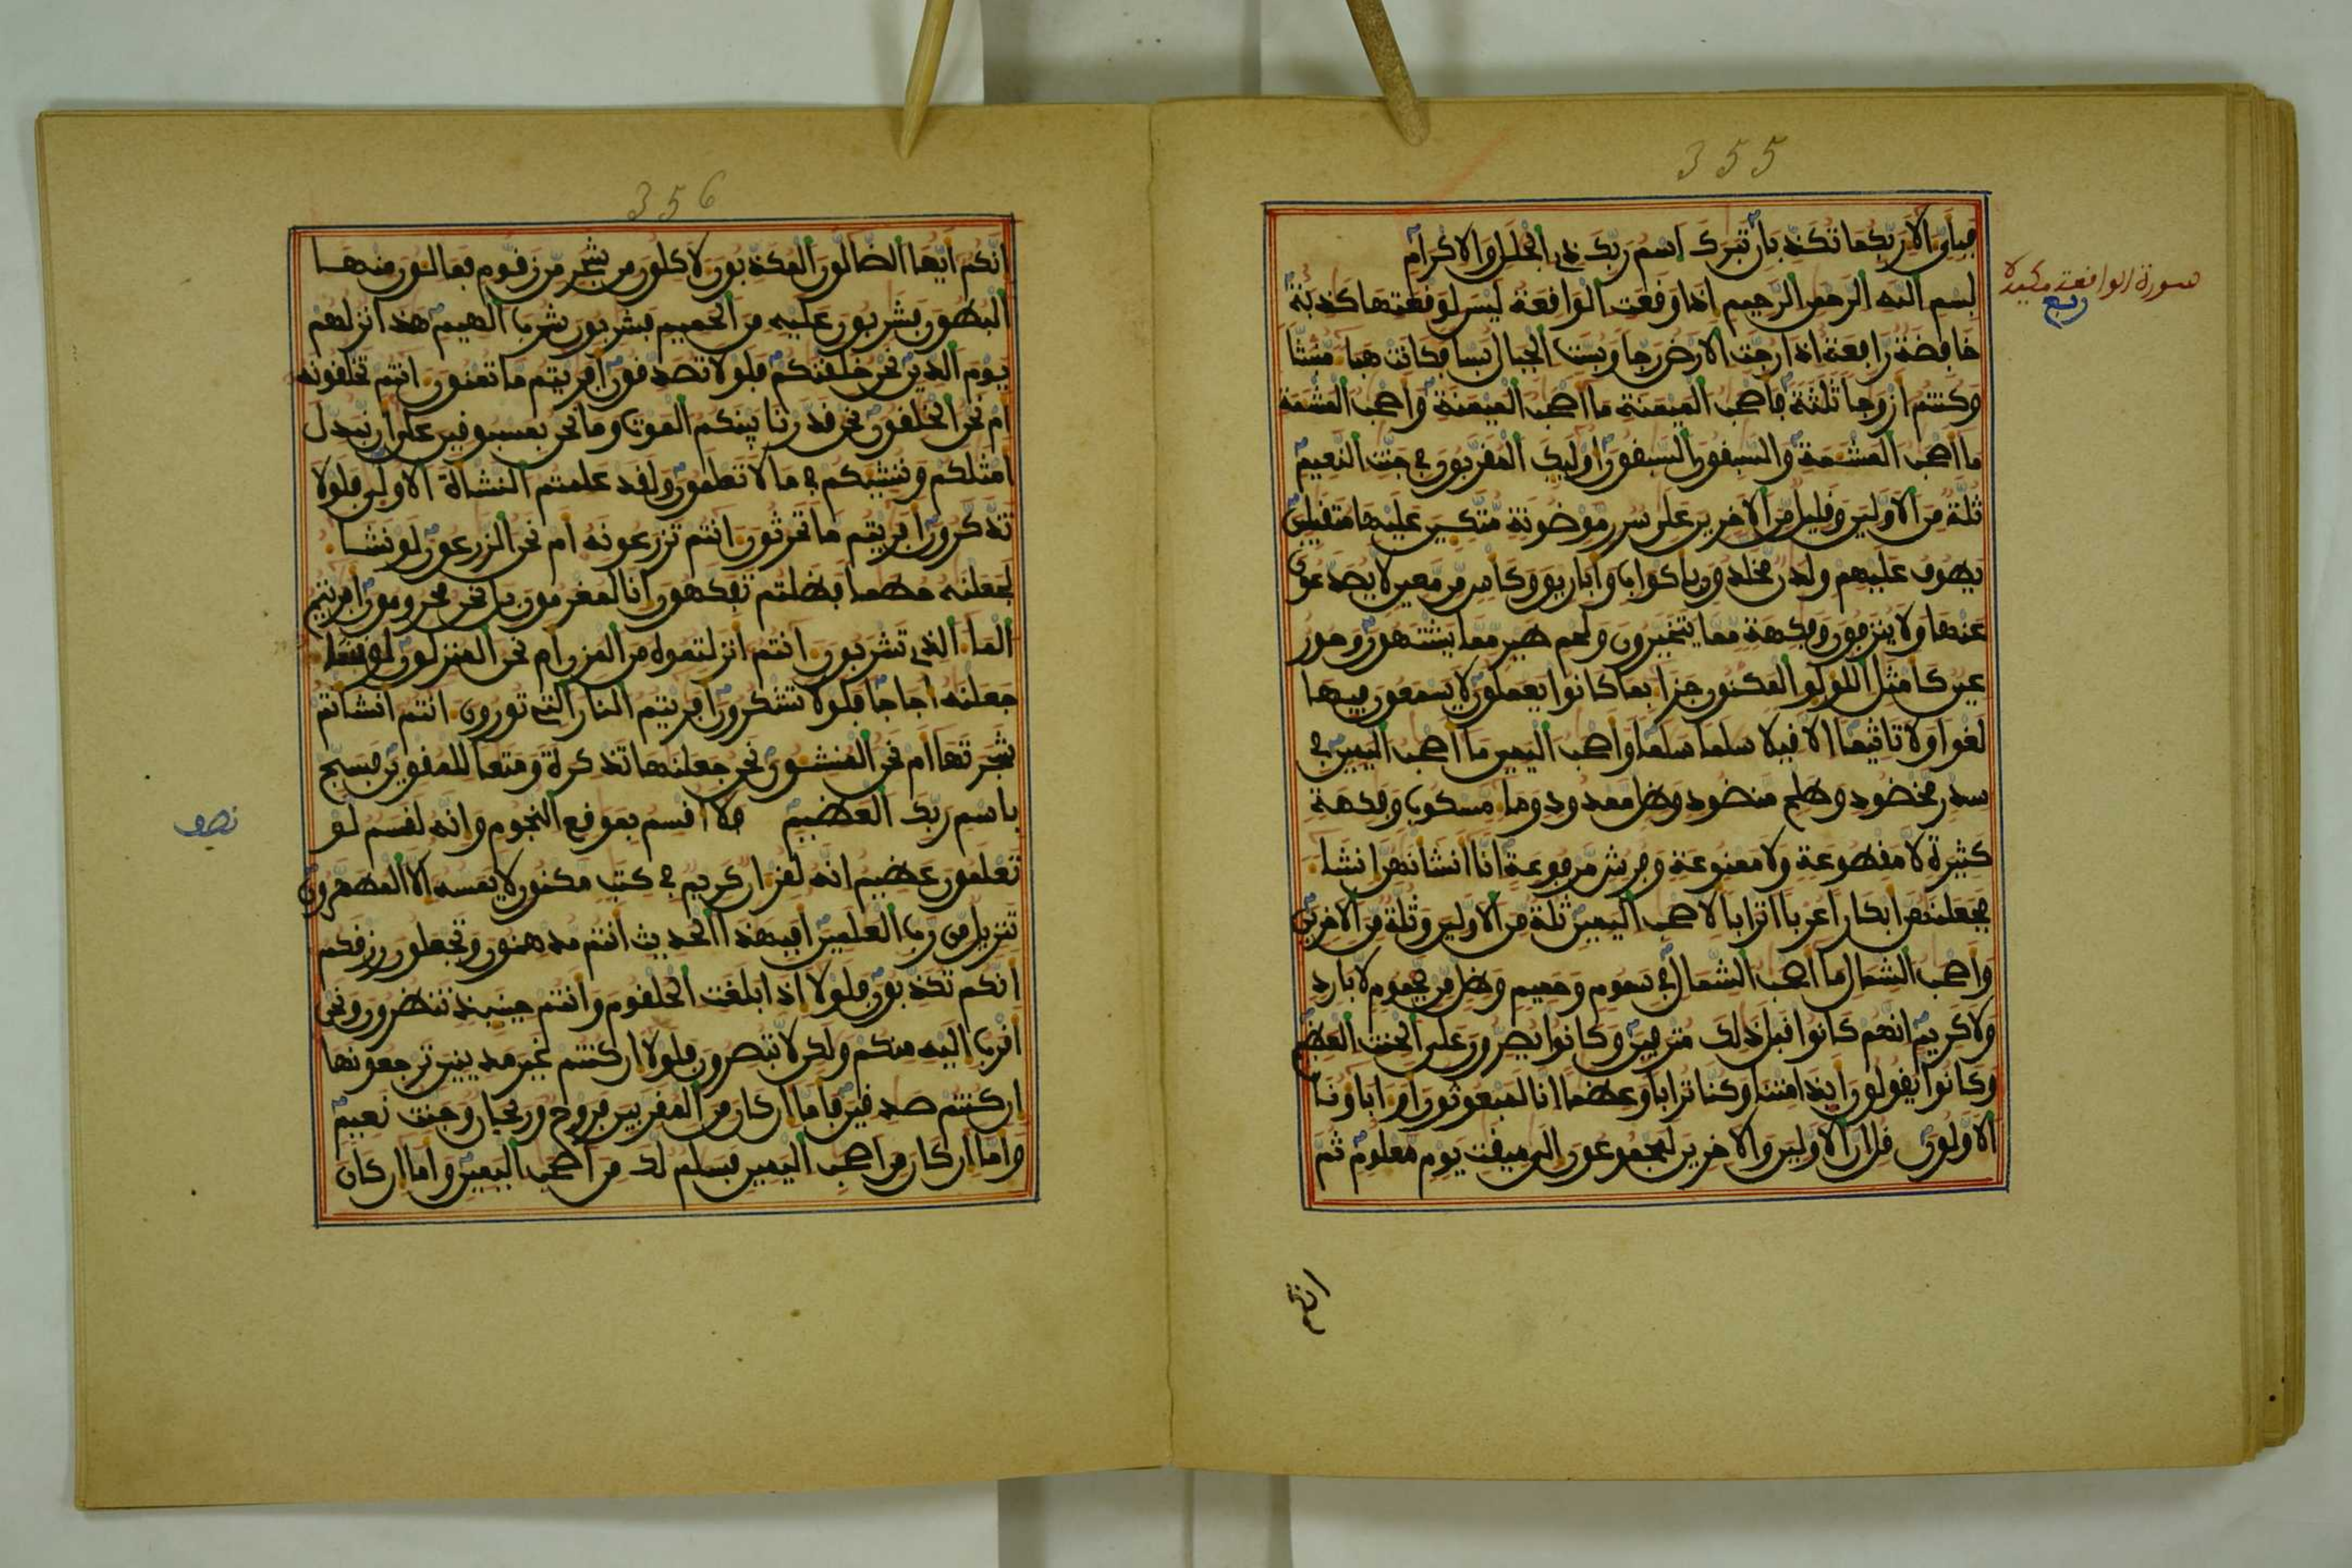 355
فبأي الاء ربكما تكذبان تبرك اسم ربك ذي الجلل والاكرام
سورة الواقعة مكية
ربع
بسم الله الرحمن الرحيم اذا وقعت الواقعة ليس لوقعتها كذبة
خافضة رافعة اذا رجت الارض رجا وبست الجبال بسا فكانت هباء منبثا
وكنتم ازوجا ثلثة فاصحب الميمنة ما اصحب الميمنة واصحب المشمة
ما اصحب المشمة والسبقون السبقون اوليك المقربون في جنت النعيم
ثلة من الاولين وقليل من الاخرين على سرر موضونة متكين عليها متقبلين
يطوف عليهم ولدن مخلدون باكواب واباريق وكاس من معين لا يصدعون
عنها ولا ينزفون وفكهة مما يتخيرون ولحم طير مما يشتهون وحور
عين كامثل اللولو المكنون جزاء بما كانوا يعملون لا يسمعون فيها
لغوا ولا تاثيما الا قيلا سلما سلما واصحب اليمين ما اصحب اليمين في
سدر مخضود وطلح منضود وظل ممدود وماء مسكوب وفكهة
كثيرة لا مقطوعة ولا ممنوعة وفرش مرفوعة انا انشانهن انشاء
فجعلنهن ابكارا عربا اترابا لاصحب اليمين ثلة من الاولين وثلة من الاخرين
واصحب الشمال ما اصحب الشمال في سموم وحميم وظل من يحموم لا بارد
ولا كريم انهم كانوا قبل ذلك مترفين وكانوا يصرون على الحنث العظيم
وكانوا يقولون ايذا متنا وكنا ترابا وعظما انا لمبعوثون او اباونا
الاولون قل ان الاولين والاخرين لمجموعون الى ميقت يوم معلوم ثم
انكم
356
انكم ايها الضالون المكذبون لاكلون من شجر من زقوم فمالون منها
البطون فشربون عليه من الحميم فشربون شرب الهيم هذا نزلهم
يوم الدين نحن خلقنكم فلولا تصدقون افريتم ما تمنون انتم تخلقونه
ام نحن الخلقون نحن قدرنا بينكم الموت وما نحن بمسبوقين على ان نبدل
امثلكم وننشيكم في ما لا تعلمون ولقد علمتم النشاة الاولى فلولا
تذكرون افريتم ما تحرثون انتم تزرعونه ام نحن الزرعون لو نشاء
لجعلنه حطما فظلتم تفكهون انا لمغرمون بل نحن محرومون افريتم
الماء الذي تشربون انتم انزلتموه من المزن ام نحن المنزلون لو نشاء
جعلنه اجاجا فلولا تشكرون افريتم النار التي تورون انتم انشاتم
شجرتها ام نحن المنشون نحن جعلنها تذكرة ومتعا للمقوين فسبح
باسم ربك العظيم فلا اقسم بموقع النجوم وانه لقسم لو
نصف
تعلمون عظيم انه لقران كريم في كتب مكنون لا يمسه الا المطهرون
تنزيل من رب العلمين افبهذا الحديث انتم مدهنون وتجعلون رزقكم
انكم تكذبون فلولا اذا بلغت الحلقوم وانتم حينيذ تنظرون ونحن
اقرب اليه منكم ولكن لا تبصرون فلولا ان كنتم غير مدينين ترجعونها
ان كنتم صدقين فاما ان كان من المقربين فروح وريحان وجنت نعيم
واما ان كان من اصحب اليمين فسلم لك من اصحب اليمين واما ان كان